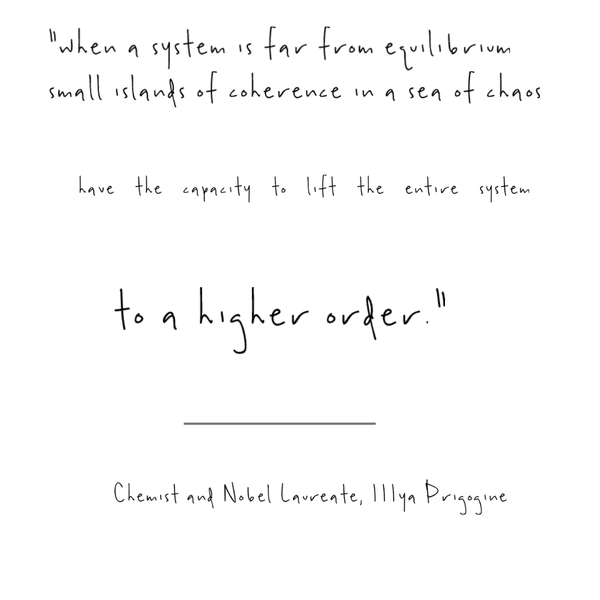 "when a system is far from equilibrium
small islands of coherence in a sea of chaos
have the capacity to lift the entire system
to a higher order."
Chemist and Nobel Laureate, Illya Prigogine